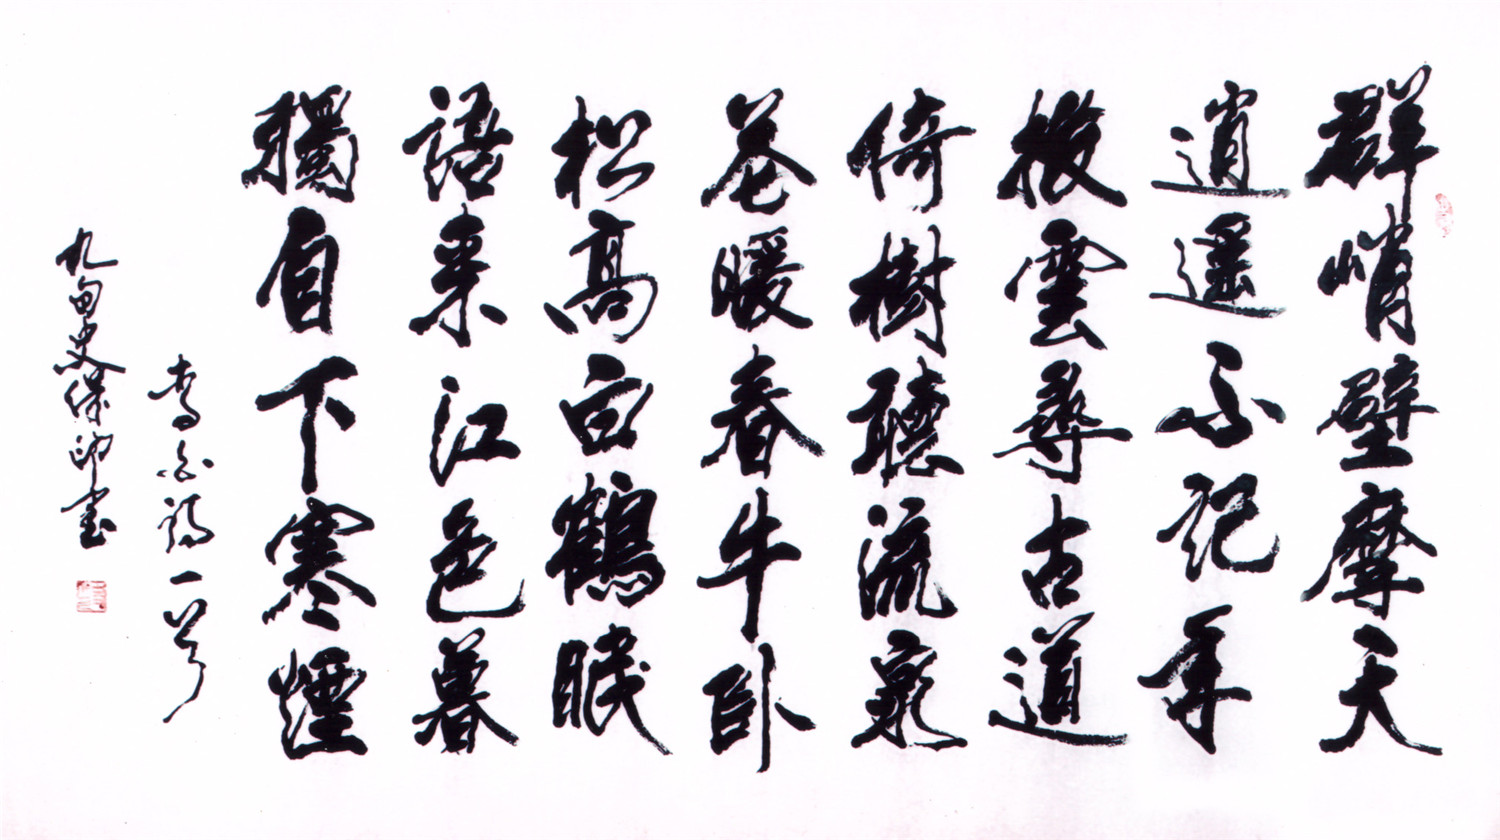 群峭壁摩天
逍遥不記年
撥雲尋古道
倚樹聽流泉
花暖春牛卧
松高白鶴眠
語来江色暮
獨自下寒煙
李白詩一首
九旬史保印书